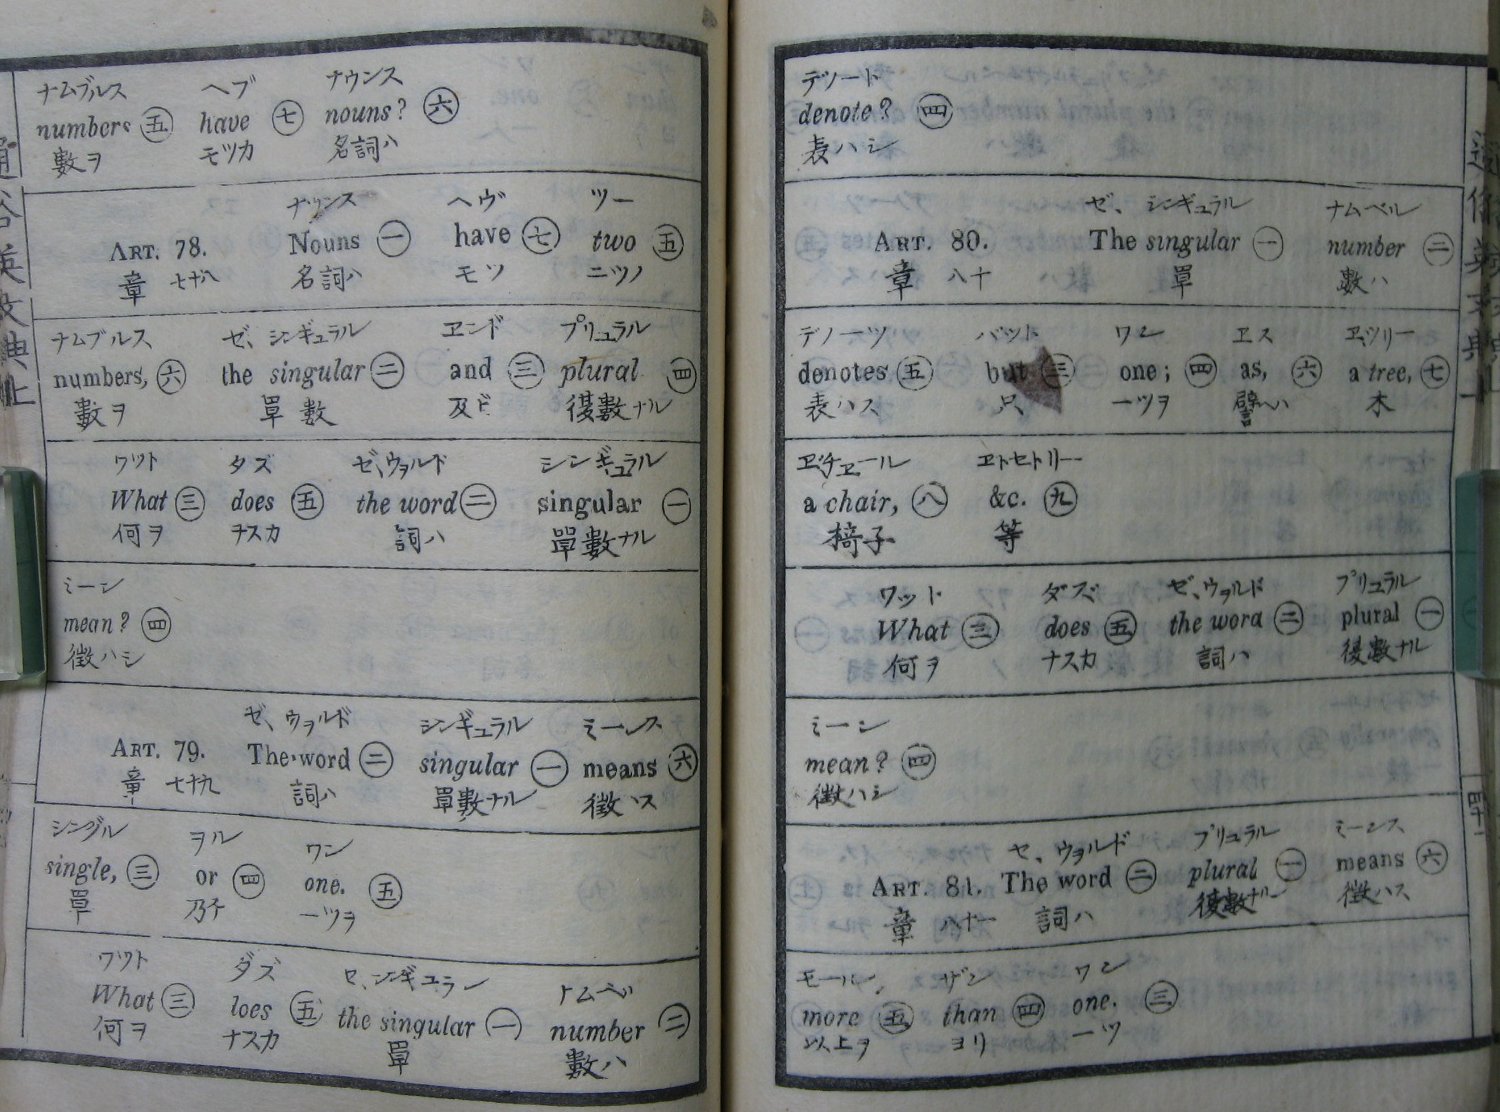 ナムブルス ヘブ ナウンス
numbers 五 have 七 nouns? 六
數ヲ モツカ 名詞ハ
ナウンス ヘヴ ツー
ART. 78. Nouns 一 have 七 two 五
章 七十八 名詞ハ モツ 二ツノ
ナムブルス ゼ、シンギュラル ヱンド プリュラル
numbers, 六 the singular 二 and 三 plural 四
數ヲ 單數 及ビ 復數ナル
ワツト タズ ゼ、ウヲルド シンギュラル
What 三 does 五 the word 二 singular 一
何ヲ ナスカ 詞ハ 單數ナル
ミーン
mean? 四
徴ハシ
ゼ、ウヲルド シンギュラル ミーンス
ART. 79. The word 二 singular 一 means 六
章 七十九 詞ハ 單數ナル 徴ハス
シングル ヲル ワン
single, 三 or 四 one. 五
單 乃チ 一ツヲ
ワツト ダズ ゼ、シンギュラン ナムベル
What 三 does 五 the singular 一 number 二
何ヲ ナスカ 單 數ハ
デノード
denote? 四
表ハシ
ゼ、シンギュラル ナムベル
ART. 80. The singular 一 number 二
章 八十 單 數ハ
デノーツ バット ワン ヱス ヱ、ツリー
denotes 五 but 三 one; 四 as, 六 a tree, 七
表ハス 只 一ツヲ 譬ヘハ 木
ヱ、チヱール ヱトセトリー
a chair, 八 &c. 九
椅子 等
ワット ダズ ゼ、ウヲルド プリュラル
What 三 does 五 the word 二 plural 一
何ヲ ナスカ 詞ハ 復數ナル
ミーン
mean? 四
徴ハシ
ゼ、ウヲルド プリュラル ミーンス
ART. 81. The word 二 plural 一 means 六
章 八十一 詞ハ 復數ナル 徴ハス
モール、 ザン ワン
more 五 than 四 one. 三
以上ヲ ヨリ 一ツ
四十一